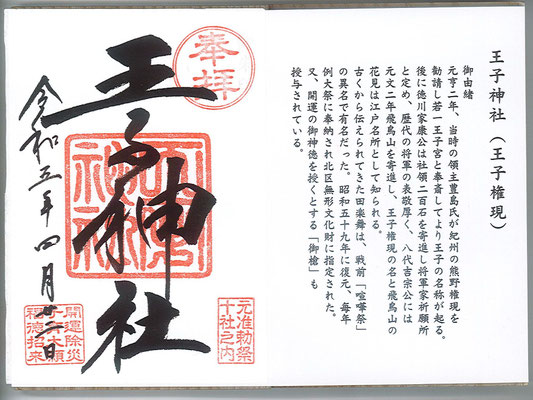 王子神社（王子権現）
御由緒
元亨二年、当時の領主豊島氏が紀州の熊野権現を
勧請し若一王子宮と奉斎してより王子の名称が起る。
後に徳川家康公は社領二百石を寄進し将軍家祈願所
と定め、歴代の将軍の表敬厚く、八代吉宗公には
元文二年飛鳥山を寄進し、王子権現の名と飛鳥山の
花見は江戸名所として知られる。
古くから伝えられてきた田楽舞は、戦前「喧嘩祭」
の異名で有名だった。昭和五十九年に復元、毎年
例大祭に奉納され北区無形文化財に指定された。
又、開運の御神徳を授くとする「御槍」も
授与されている。
奉拝
元准勅祭
十社之内
王子神社
令和五年四月 日
開運除災
大願
福徳招来